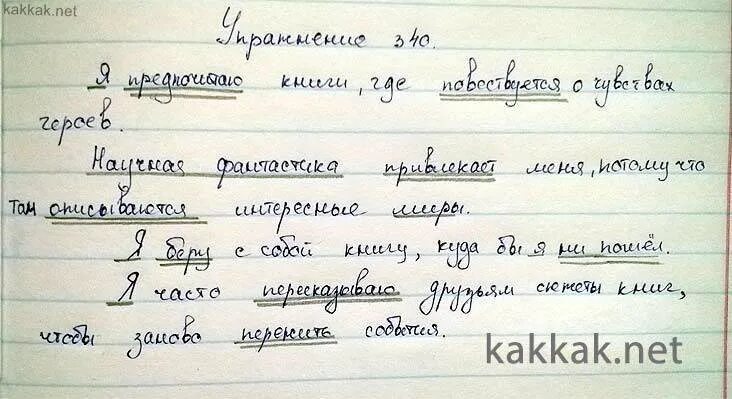 kakkak.net
Упражнение 340.
Я предпочитаю книги, где повествуется о чувствах
героев.
Научная фантастика привлекает меня, потому что
там описываются интересные миры.
Я беру с собой книгу, куда бы я ни пошёл.
Я часто пересказываю друзьям сюжеты книг,
чтобы заново пережить события.
kakkak.net